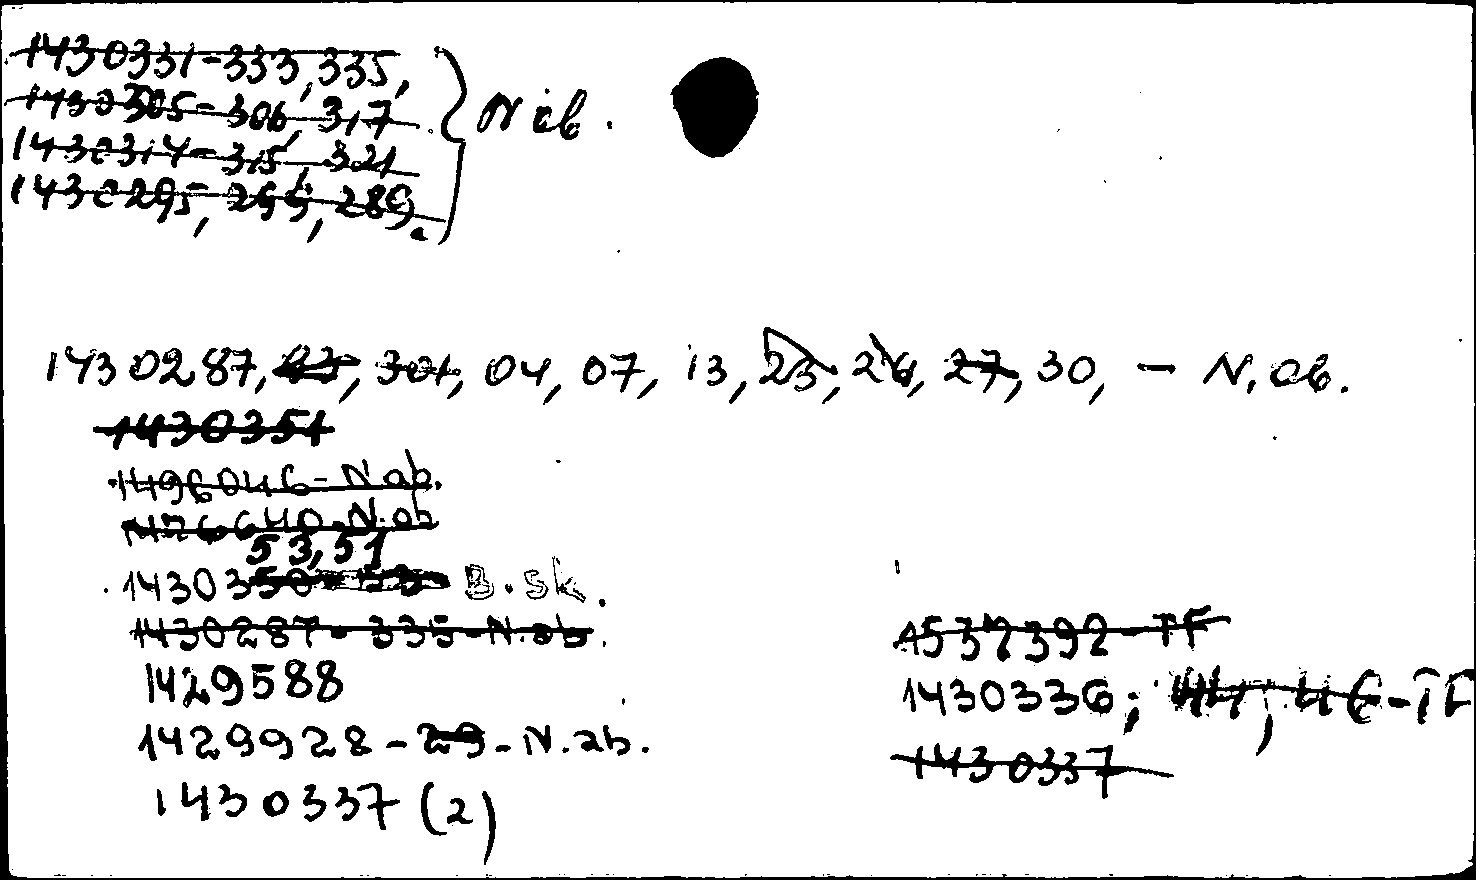 1430331-333, 335,
1430305-306, 317
1430314-315, 321
1430295, 299, 289. } N ab.
1430287, 93, 301, 04, 07, 13, 23, 24, 27, 30, - N. ab.
1430351
1496046-N ab.
53, 51
1430350-53- B. sk.
1430287-335-N.ab.
1429588
1429928-29-N.ab.
1430337 (2)
1430336; 44, 46-TF
1430337